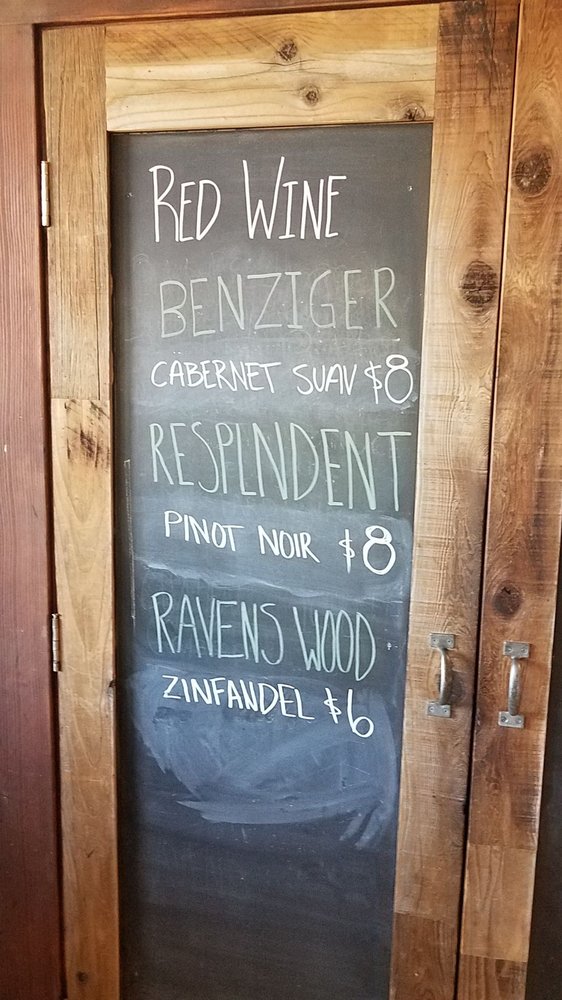 RED WINE
BENZIGER
CABERNET SUAV $8
RESPLNDENT
PINOT NOIR $8
RAVENS WOOD
ZINFANDEL $6